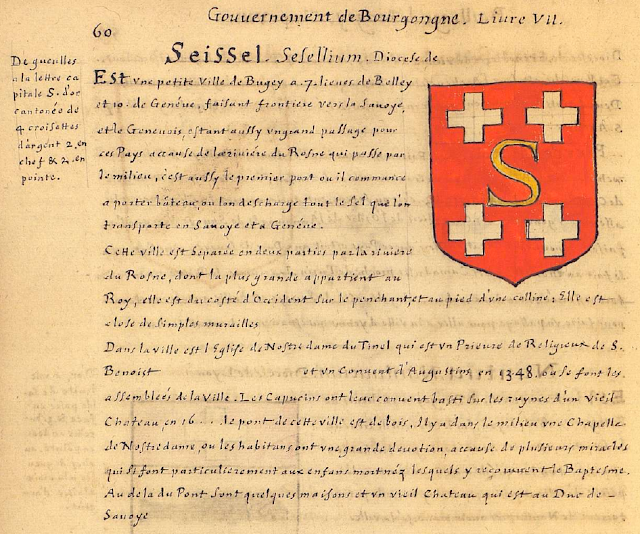 Gouvernement de Bourgongne. Liure VII.
60
Seissel Sesellium. Diocese de
De gueulles
a la lettre ca
pitale S. d'or
cantonée de
4 croisettes
d'argent 2. en
chef & 2. en
pointe.
Est vne petite Ville de Bugey a .7. lieues de Belley
et 10. de Genéue, faisant frontiere vers la Sauoye,
et le Geneuois, estant aussy vn grand passage pour
ces Pays a cause de la riviére du Rosne qui passe par
le milieu, c'est aussy le premier port ou il commance
a porter bâteau, ou l'on descharge tout le Sel que l'on
transporte en Sauoye et a Genéue.
Cette ville est separée en deux parties par la riuiere
du Rosne, dont la plus grande appartient au
Roy, elle est du costé d'Occident sur le penchant, et au pied d'vne colline; Elle est
close de simples murailles
Dans la ville est l'Eglise de Nostre dame du Tinel qui est vn Prieure de Religieux de S.
Benoist et vn Conuent d'Augustins en 1348. ou se font les
assemblées de la Ville. Les Capucins ont leur conuent basti sur les ruynes d'vn vieil
Chateau en 16... le pont de cette ville est de bois, Il y a dans le milieu vne Chapelle
de Nostre dame, ou les habitans ont vne grande deuotion, a cause de plusieurs miracles
qui si font particulierement aux enfans mortnéz lesquels y reçoiuent le Baptesme.
Au dela du Pont sont quelques maisons et vn vieil Chateau qui est au Duc de -
Sauoye
S